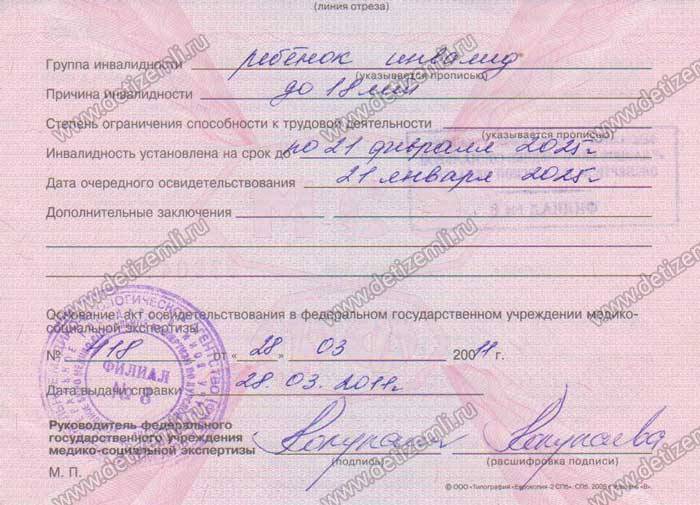 (линия отреза)
Группа инвалидности ребёнок инвалид
(указывается прописью)
Причина инвалидности до 18 лет
Степень ограничения способности к трудовой деятельности
(указывается прописью)
Инвалидность установлена на срок до по 21 февраля 2025 г
Дата очередного освидетельствования 21 января 2025 г
Дополнительные заключения
ФИЛИАЛ № 8
Основание: акт освидетельствования в федеральном государственном учреждении медико-
социальной экспертизы
№ 418 от « 28 » 03 200 11 г.
Дата выдачи справки 28.03.2011 г
ФИЛИАЛ
№ 8
Руководитель федерального
государственного учреждения
медико-социальной экспертизы
(подпись) (расшифровка подписи)
М. П.
www.detizemli.ru